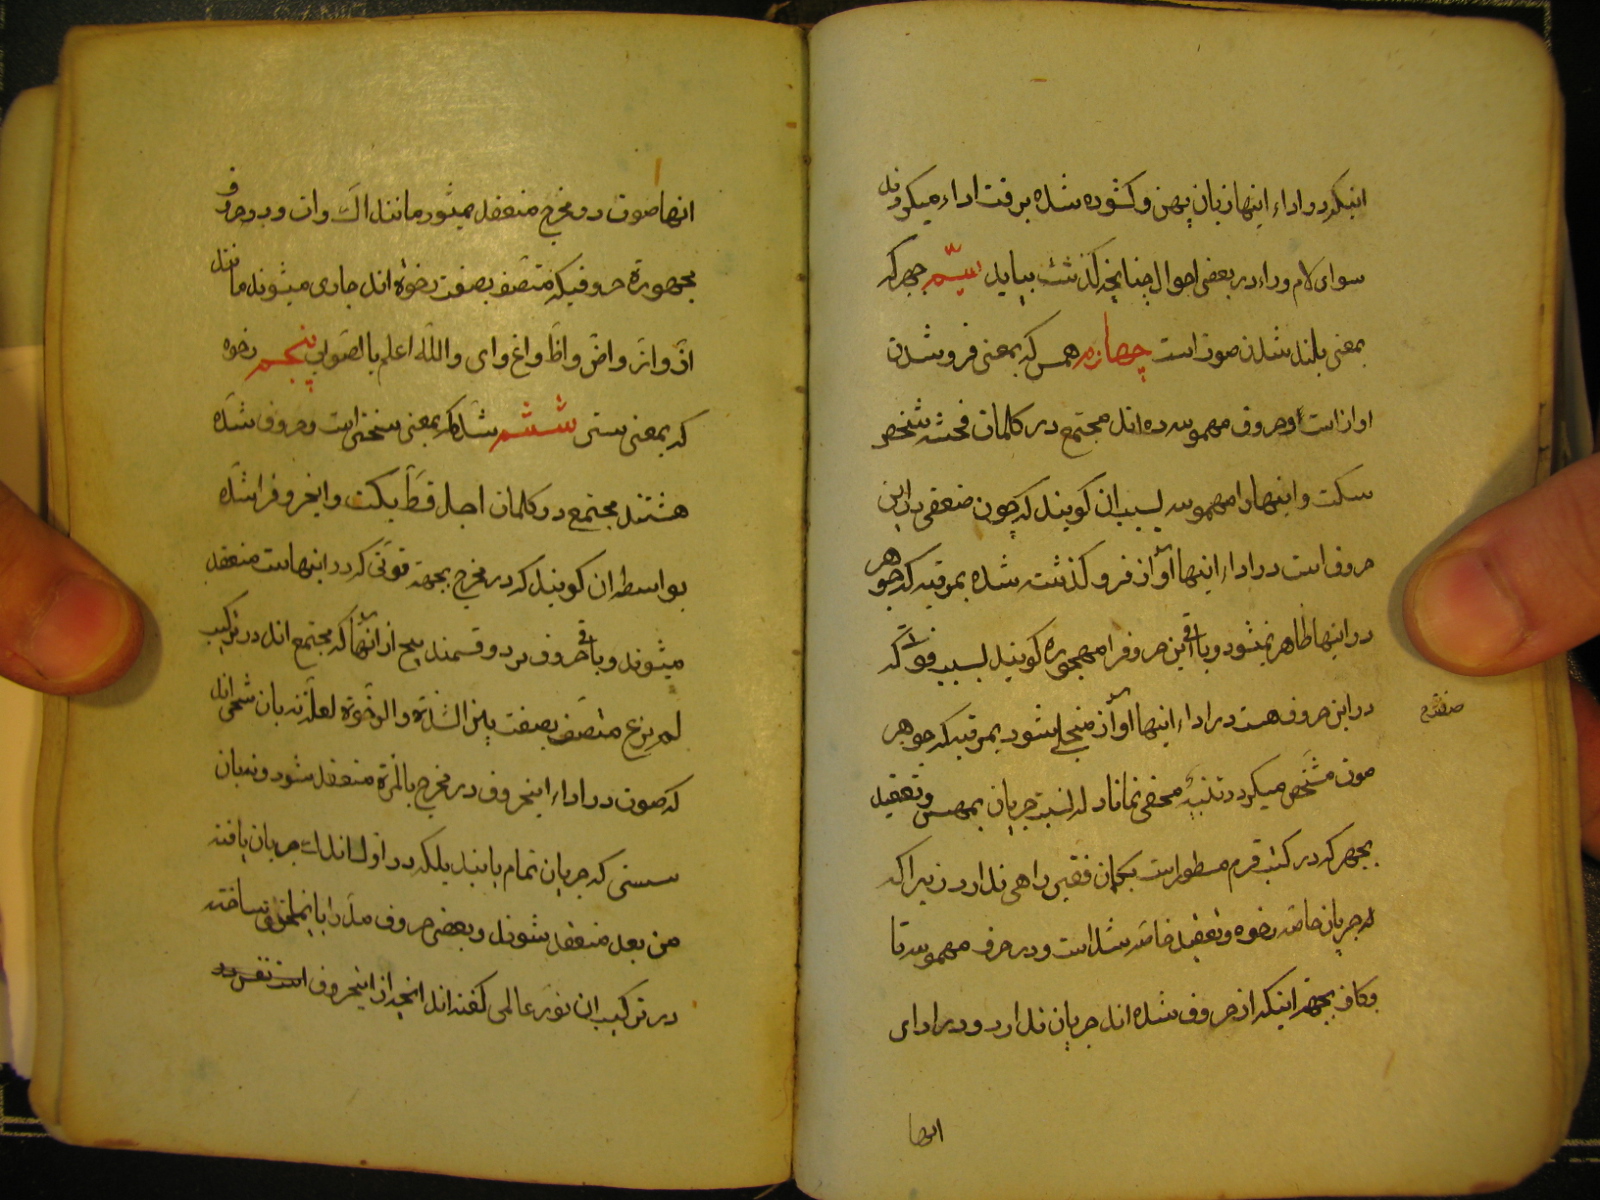 اینکه در اداء اینها زبان پهن و کشوده شده برفت اداء میکردند
سوای لام و راء در بعضی احوال چنانچه کذشت بیاید سیّم جهر که
بمعنی بلند شدن صوت است چهارم همس که بمعنی فرو شدن
اواز است و حروف مهموسه ده اند مجتمع در کلمات فحثه شخص
سکت و اینها را مهموسه بسبب ان کویند که چون ضعفی در این
حروف است در اداء اینها آواز فرو کذشته شده بمرتبه که جوهر
در اینها ظاهر نمیشود و باقی این حروفرا مجهوره کویند بسبب قوتی که
در این حروف هست در اداء اینها آواز منجلی شود بمرتبه که جوهر
صوت مشخص میکردد تنبیه مخفی نماناد که نسبت جریان بهمس و تعقید
بجهر که در کتب قوم مسطور است بکمان فقیر راهی ندارد زیرا که
که جریان خاصه رخوه و تعقید خاصه شده است و در حرف مهموسه تا
و کاف بجهة اینکه از حروف شده اند جریان ندارد و در ادای
انها
انها صوت در مخرج منعقد میشود مانند اک و ات و در حروف
مجهوره حروفیکه متصف بصفت رخوة اند جاری میشوند مانند
اذ و از و اض و اظ و اغ و ای و الله اعلم بالصواب پنجم رخوه
که بمعنی سستی ششم شده که بمعنی سختی است و حروف شده
هشتند مجتمع در کلمات اجد قط بکت و اینحروفرا شده
بواسطه ان کویند که در مخرج بجهة قوتی که در اینهاست منعقد
میشوند و باقی حروف بر دو قسمند پنج از انها که مجتمع اند در ترکیب
لم یرع متصف بصفت بین الشدة و الرخوة لعلّ نه بان سختی اند
که صوت در اداء اینحروف در مخرج بالمرة منعقد شود و نه بان
سستی که جریان تمام یابند بلکه در اول اندک جریان یافته
من بعد منعقد شوند و بعضی حروف مد را باینها ملحق ساخته
در ترکیب ان نور عالمی کفته اند انچه از اینحروف